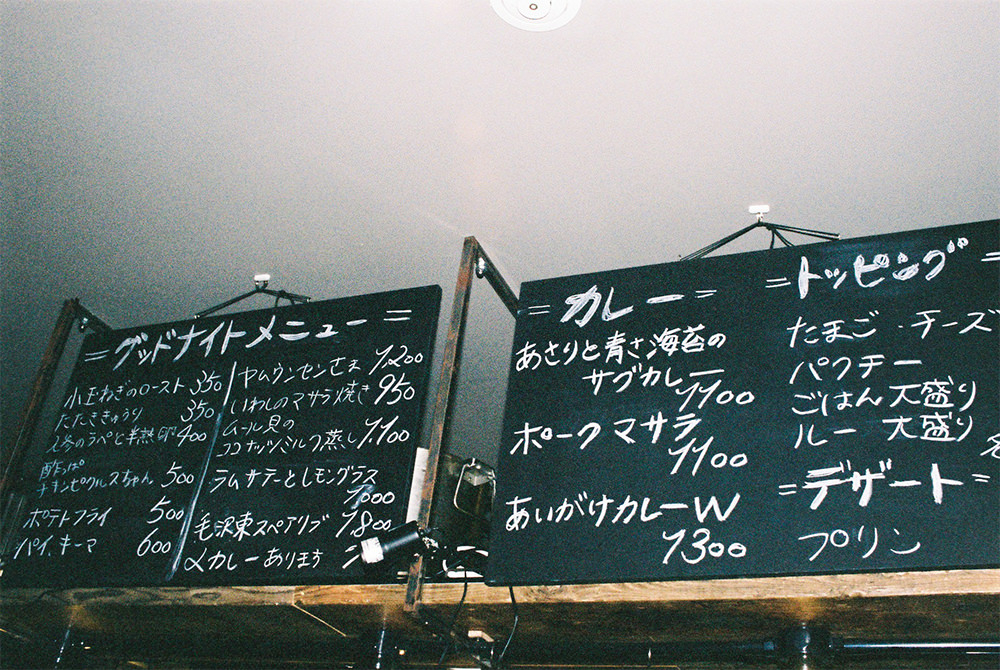 =グッドナイトメニュー=
小玉ねぎのロースト 350
たたききゅうり 350
人参のラペと半熟卵 400
酢っぱ
チキンピクルスちゃん 500
ポテトフライ 500
パイ、キーマ 600
ヤムウンセンさま 1,200
いわしのマサラ焼き 950
ムール貝の
ココナッツミルク蒸し 1,100
ラムサテーとレモングラス
1,000
毛沢東スペアリブ 1,800
〆カレーあります
=カレー=
あさりと青さ海苔の
サグカレー
1,100
ポークマサラ
1,100
あいがけカレーW
1,300
=トッピング=
たまご・チーズ
パクチー
ごはん大盛り
ルー 大盛り
=デザート=
プリン